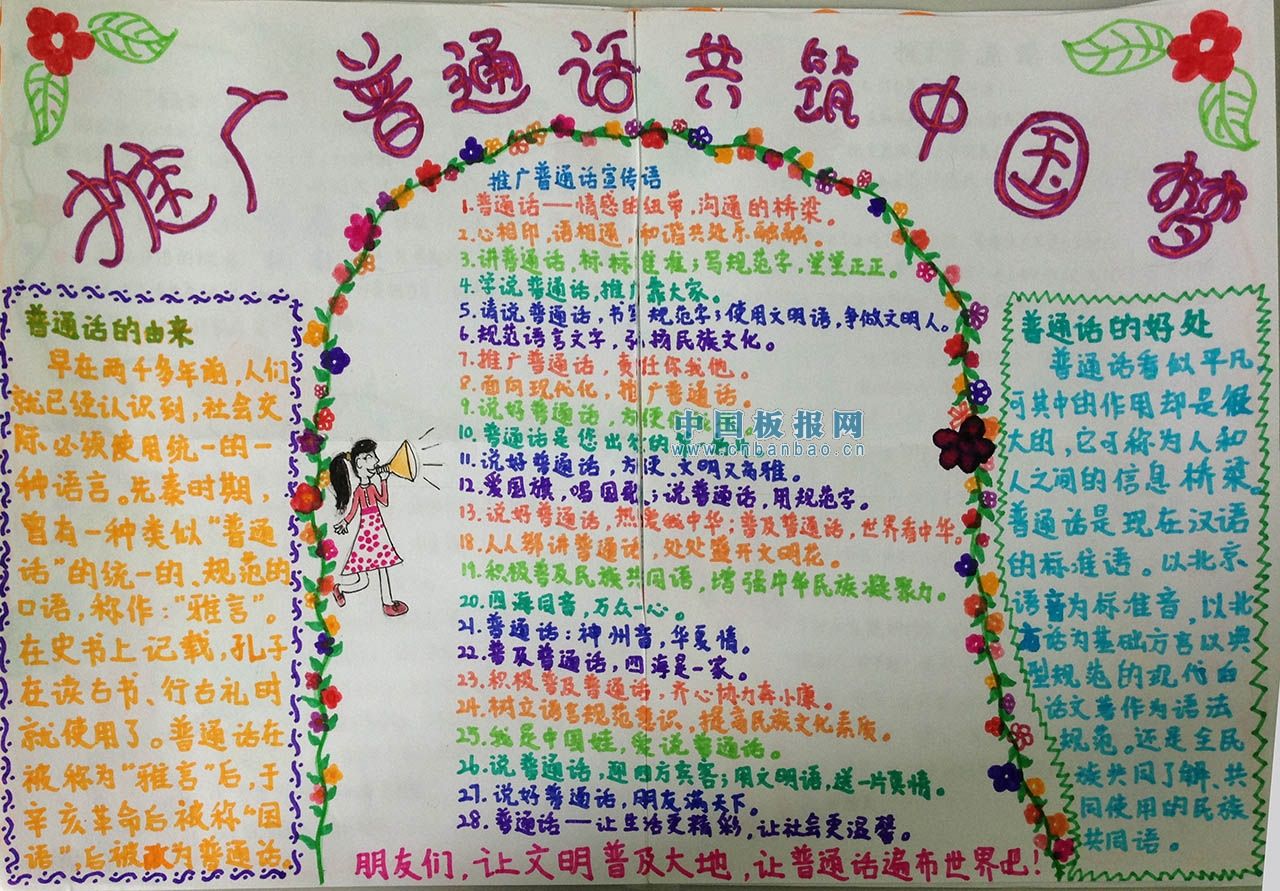 推广普通话共筑中国梦
普通话的由来
早在两千多年前,人们
就已经认识到,社会交
际必须使用统一的一
种语言。先秦时期,
曾有一种类似“普通
话”的统一的、规范的
口语,称作:“雅言”。
在史书上记载,孔子
在读古书、行古礼时
就使用了。普通话在
被称为“雅言”后,于
辛亥革命后被称“国
语”,后被改为普通话。
推广普通话宣传语
1.普通话——情感的纽带,沟通的桥梁。
2.心相印,语相通,和谐共处乐融融。
3.讲普通话,标标准准;写规范字,堂堂正正。
4.学说普通话,推广靠大家。
5.请说普通话,书写规范字;使用文明语,争做文明人。
6.规范语言文字,弘扬民族文化。
7.推广普通话,责任你我他。
8.面向现代化,推广普通话。
9.说好普通话,方便你
10.普通话是您出发的
11.说好普通话,方便、文明又高雅。
12.爱国旗,唱国歌;说普通话,用规范字。
13.说好普通话,热爱我中华;普及普通话,世界看中华。
18.人人都讲普通话,处处盛开文明花。
19.积极普及民族共同语,增强中华民族凝聚力。
20.四海同音,万众一心。
21.普通话:神州音,华夏情。
22.普及普通话,四海是一家。
23.积极普及普通话,齐心协力奔小康。
24.树立语言规范意识,提高民族文化素质。
25.我是中国娃,爱说普通话。
26.说普通话,迎四方宾客;用文明语,送一片真情。
27.说好普通话,朋友满天下。
28.普通话——让生活更精彩,让社会更温馨。
朋友们,让文明普及大地,让普通话遍布世界吧!
中国板报网
www.cnbanbao.cn
普通话的好处
普通话看似平凡,
可其中的作用却是很
大的,它可称为人和
人之间的信息桥梁。
普通话是现在汉语
的标准语。以北京
语音为标准音,以北
方话为基础方言以典
型规范的现代白
话文著作为语法
规范。还是全民
族共同了解、共
同使用的民族
共同语。